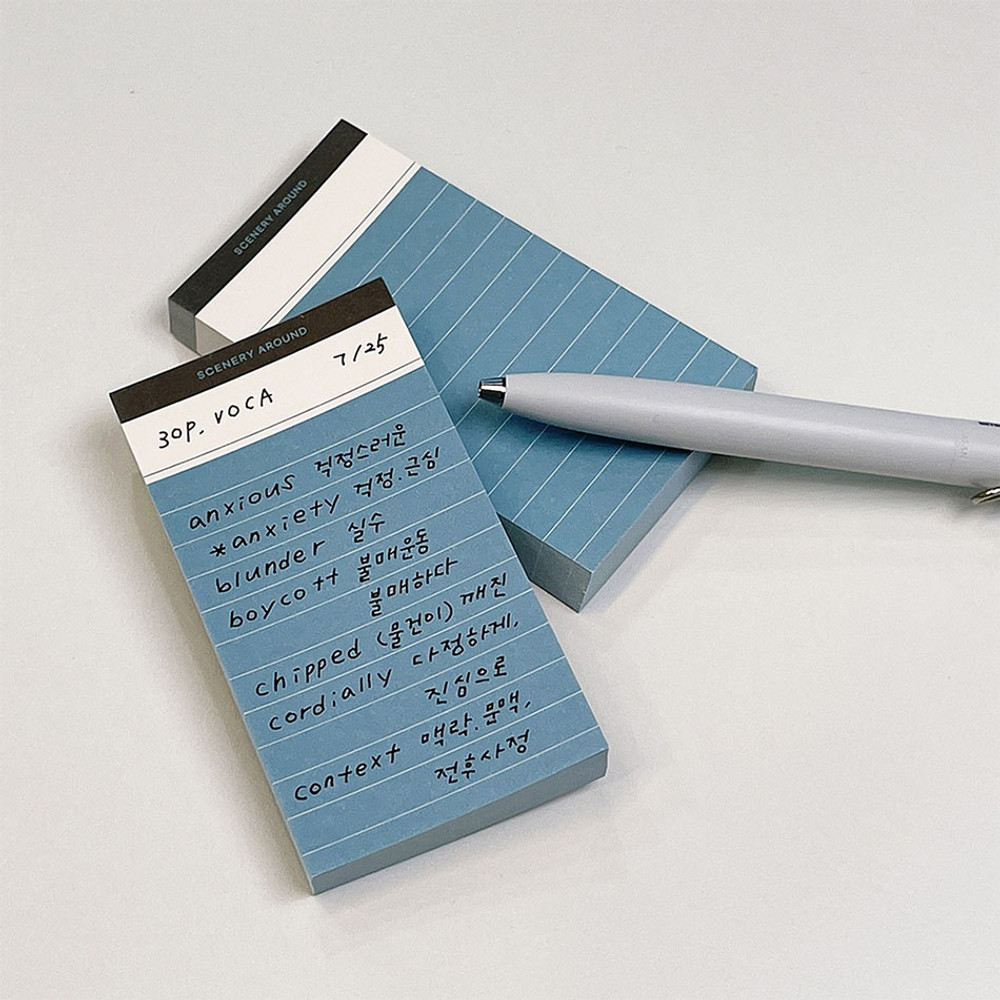 SCENERY AROUND
SCENERY AROUND
30p. VOCA 7/25
anxious 걱정스러운
*anxiety 걱정.근심
blunder 실수
boycott 불매운동
불매하다
chipped (물건이) 깨진
cordially 다정하게,
진심으로
context 맥락.문맥,
전후사정